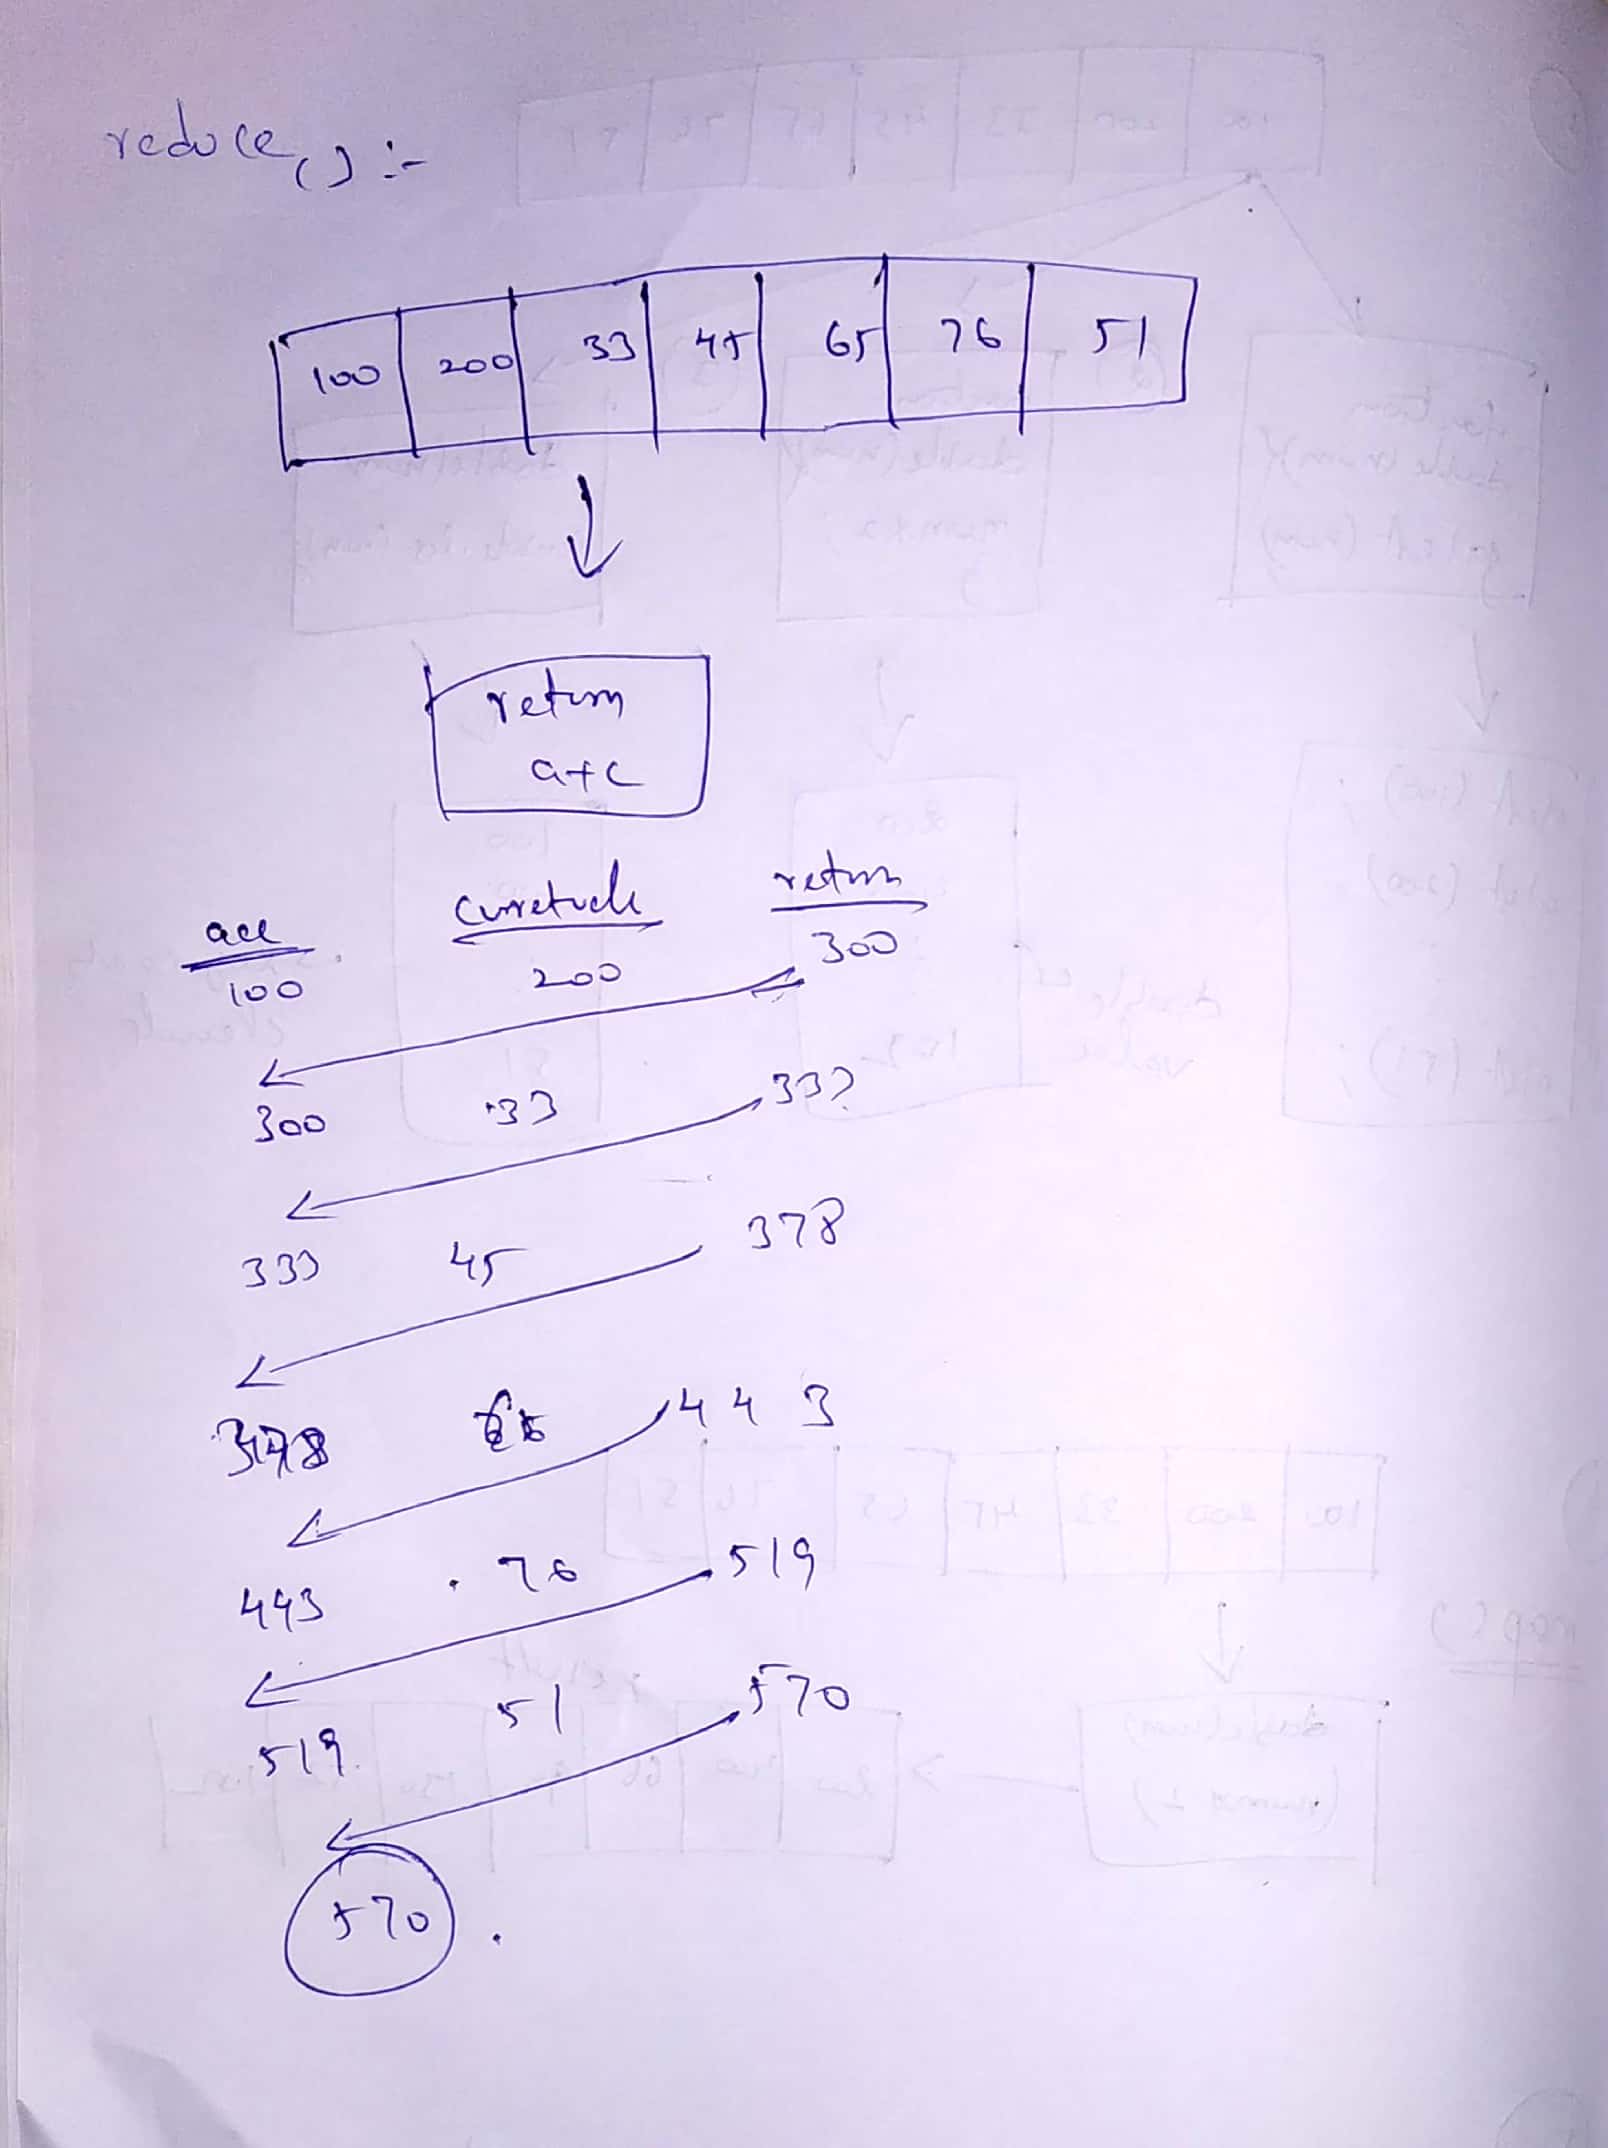 reduce() :-
100 200 33 45 65 76 51
return
a+c
acc return
100 200 300
300 33 333
333 45 378
378 65 443
443 76 519
519 51 570
570